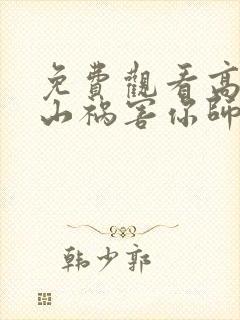 免費觀看高
山禍害你師
韩少郭